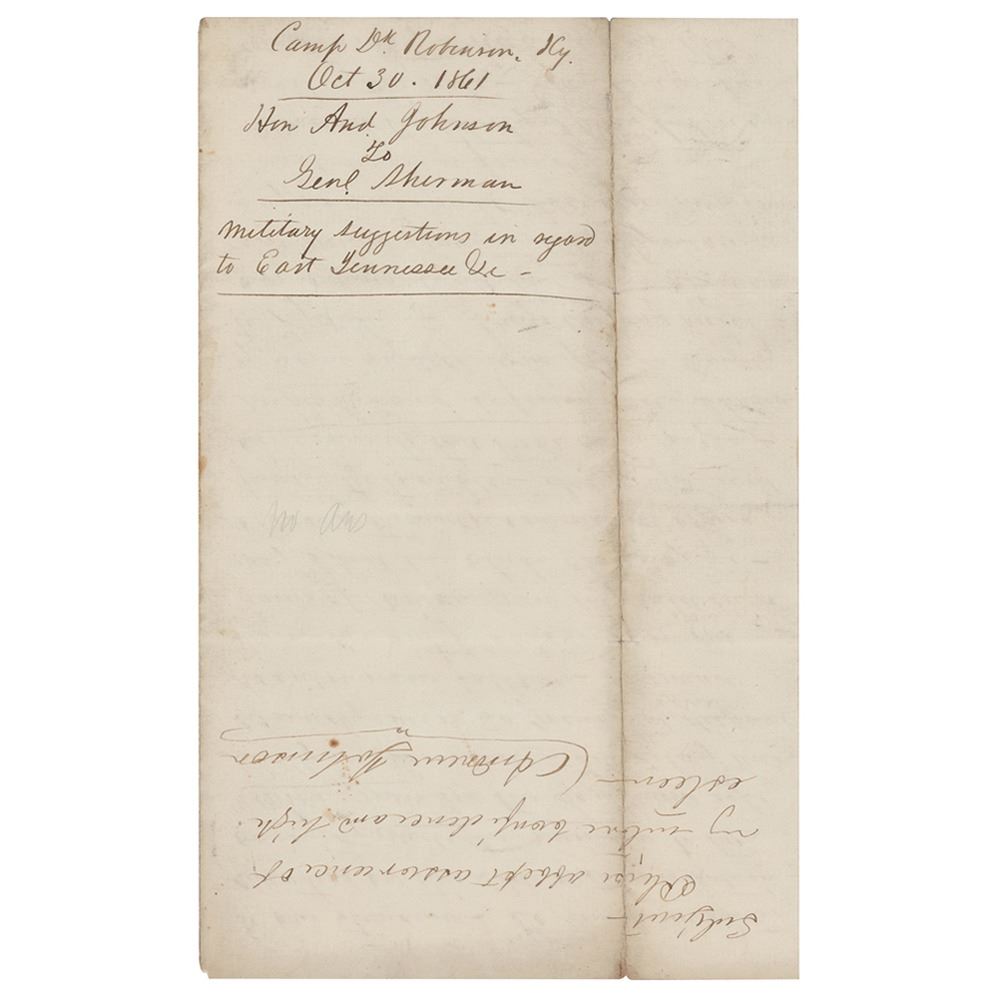 Camp Dk Robinson, Ky.
Oct 30. 1861
Hon And. Johnson
To
Genl Sherman
Military Suggestions in regard
to East Tennessee &c -
no ans
Subject -
Please accept assurance of
my entire confidence and high
esteem -
Andrew Johnson